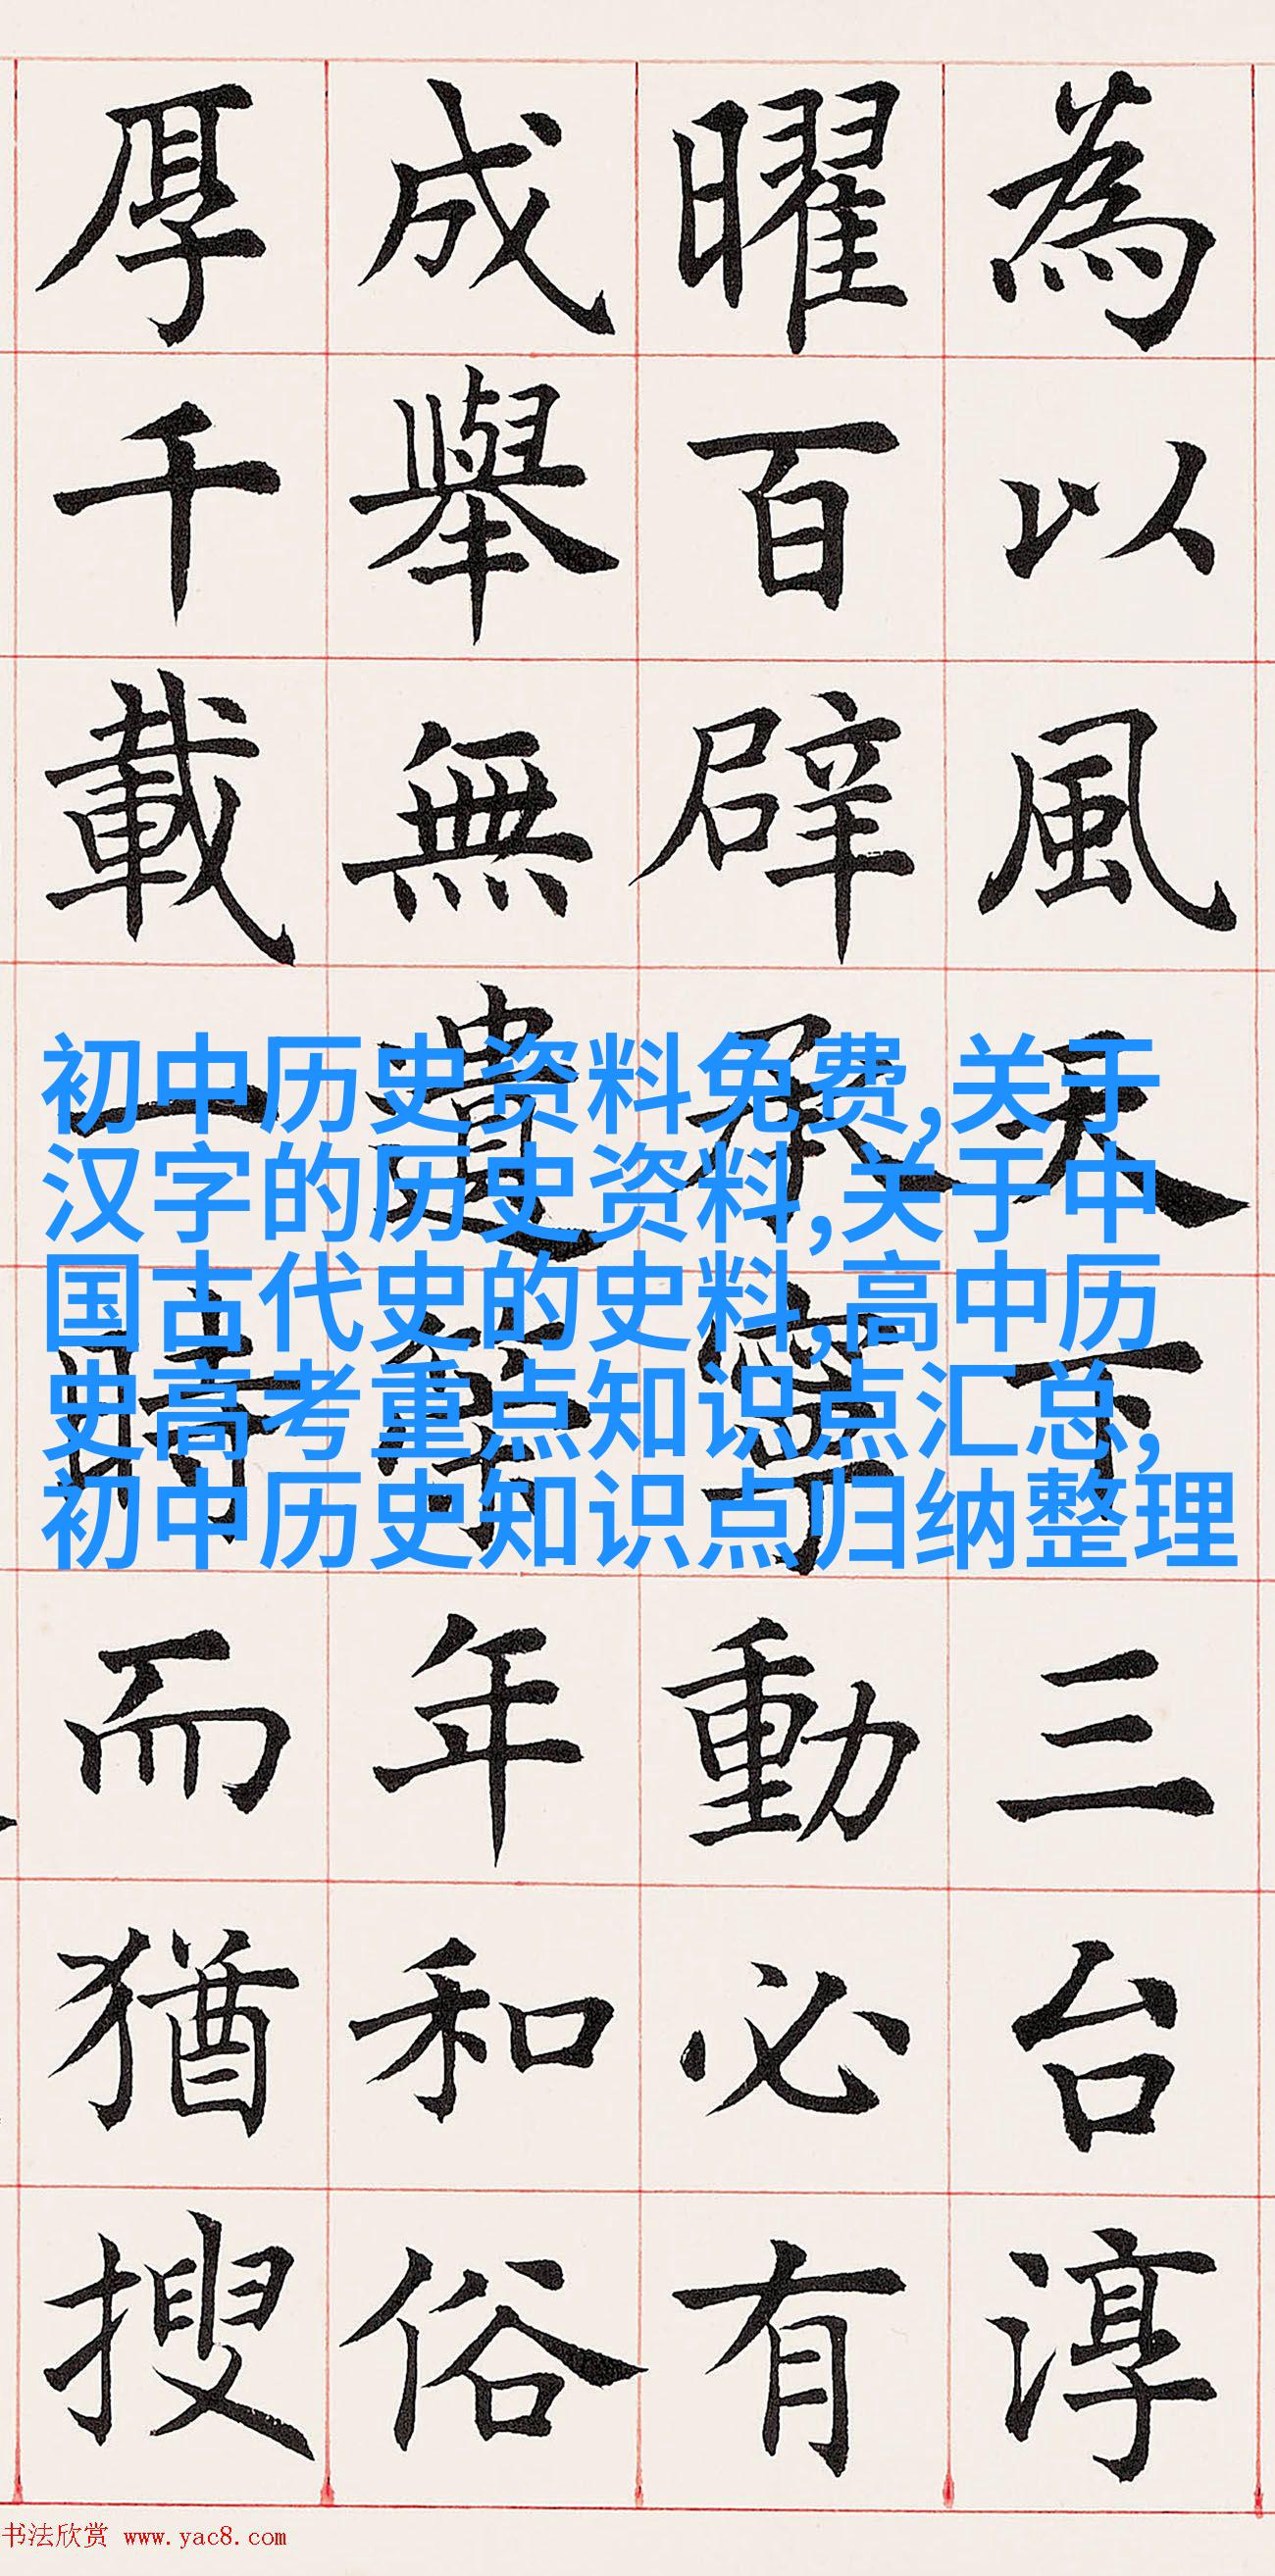 為以風天下三台淳
曜百辟承寧動必有
成舉無遺年和俗
厚千載一時而猶搜
初中历史资料免费,关于
汉字的历史资料,关于中
国古代史的史料,高中历
史高考重点知识点汇总,
初中历史知识点归纳整理
书法欣赏 www.yac8.com